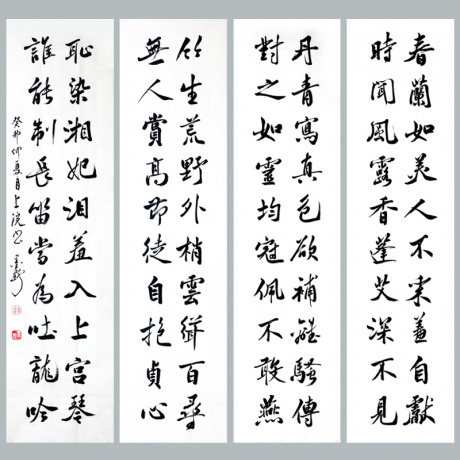 春蘭如美人不采羞自獻
時聞風露香蓬艾深不見
丹青寫真色欲補離騷傳
對之如靈均冠佩不敢燕
竹生荒野外梢雲聳百尋
無人賞高節徒自抱貞心
恥染湘妃淚羞入上宮琴
誰能制長笛當為吐龍吟
癸卯仲夏月上浣